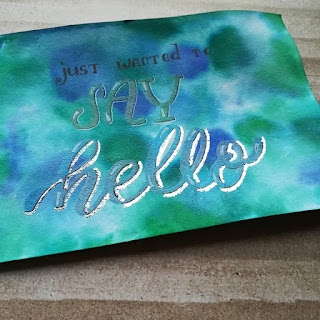 just wanted to
SAY
hello